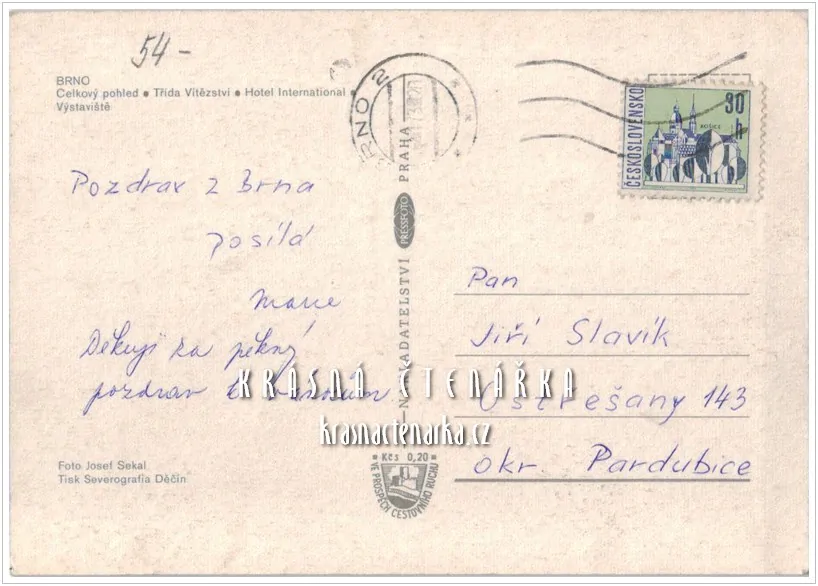 54-
BRNO
Celkový pohled • Třída Vítězství • Hotel International •
Výstaviště
BRNO 2
ČESKOSLOVENSKO
30 h
KOŠICE
Pozdrav z Brna
posílá
Marie
Děkuji za pěkný
pozdrav k
NAKLADATELSTVÍ PRESSFOTO PRAHA
Pan
Jiří Slavík
Ostřešany 143
okr. Pardubice
KRÁSNÁ ČTENÁŘKA
krasnactenarka.cz
Foto Josef Sekal
Tisk Severografia Děčín
Kčs 0,20
VE PROSPĚCH CESTOVNÍHO RUCHU